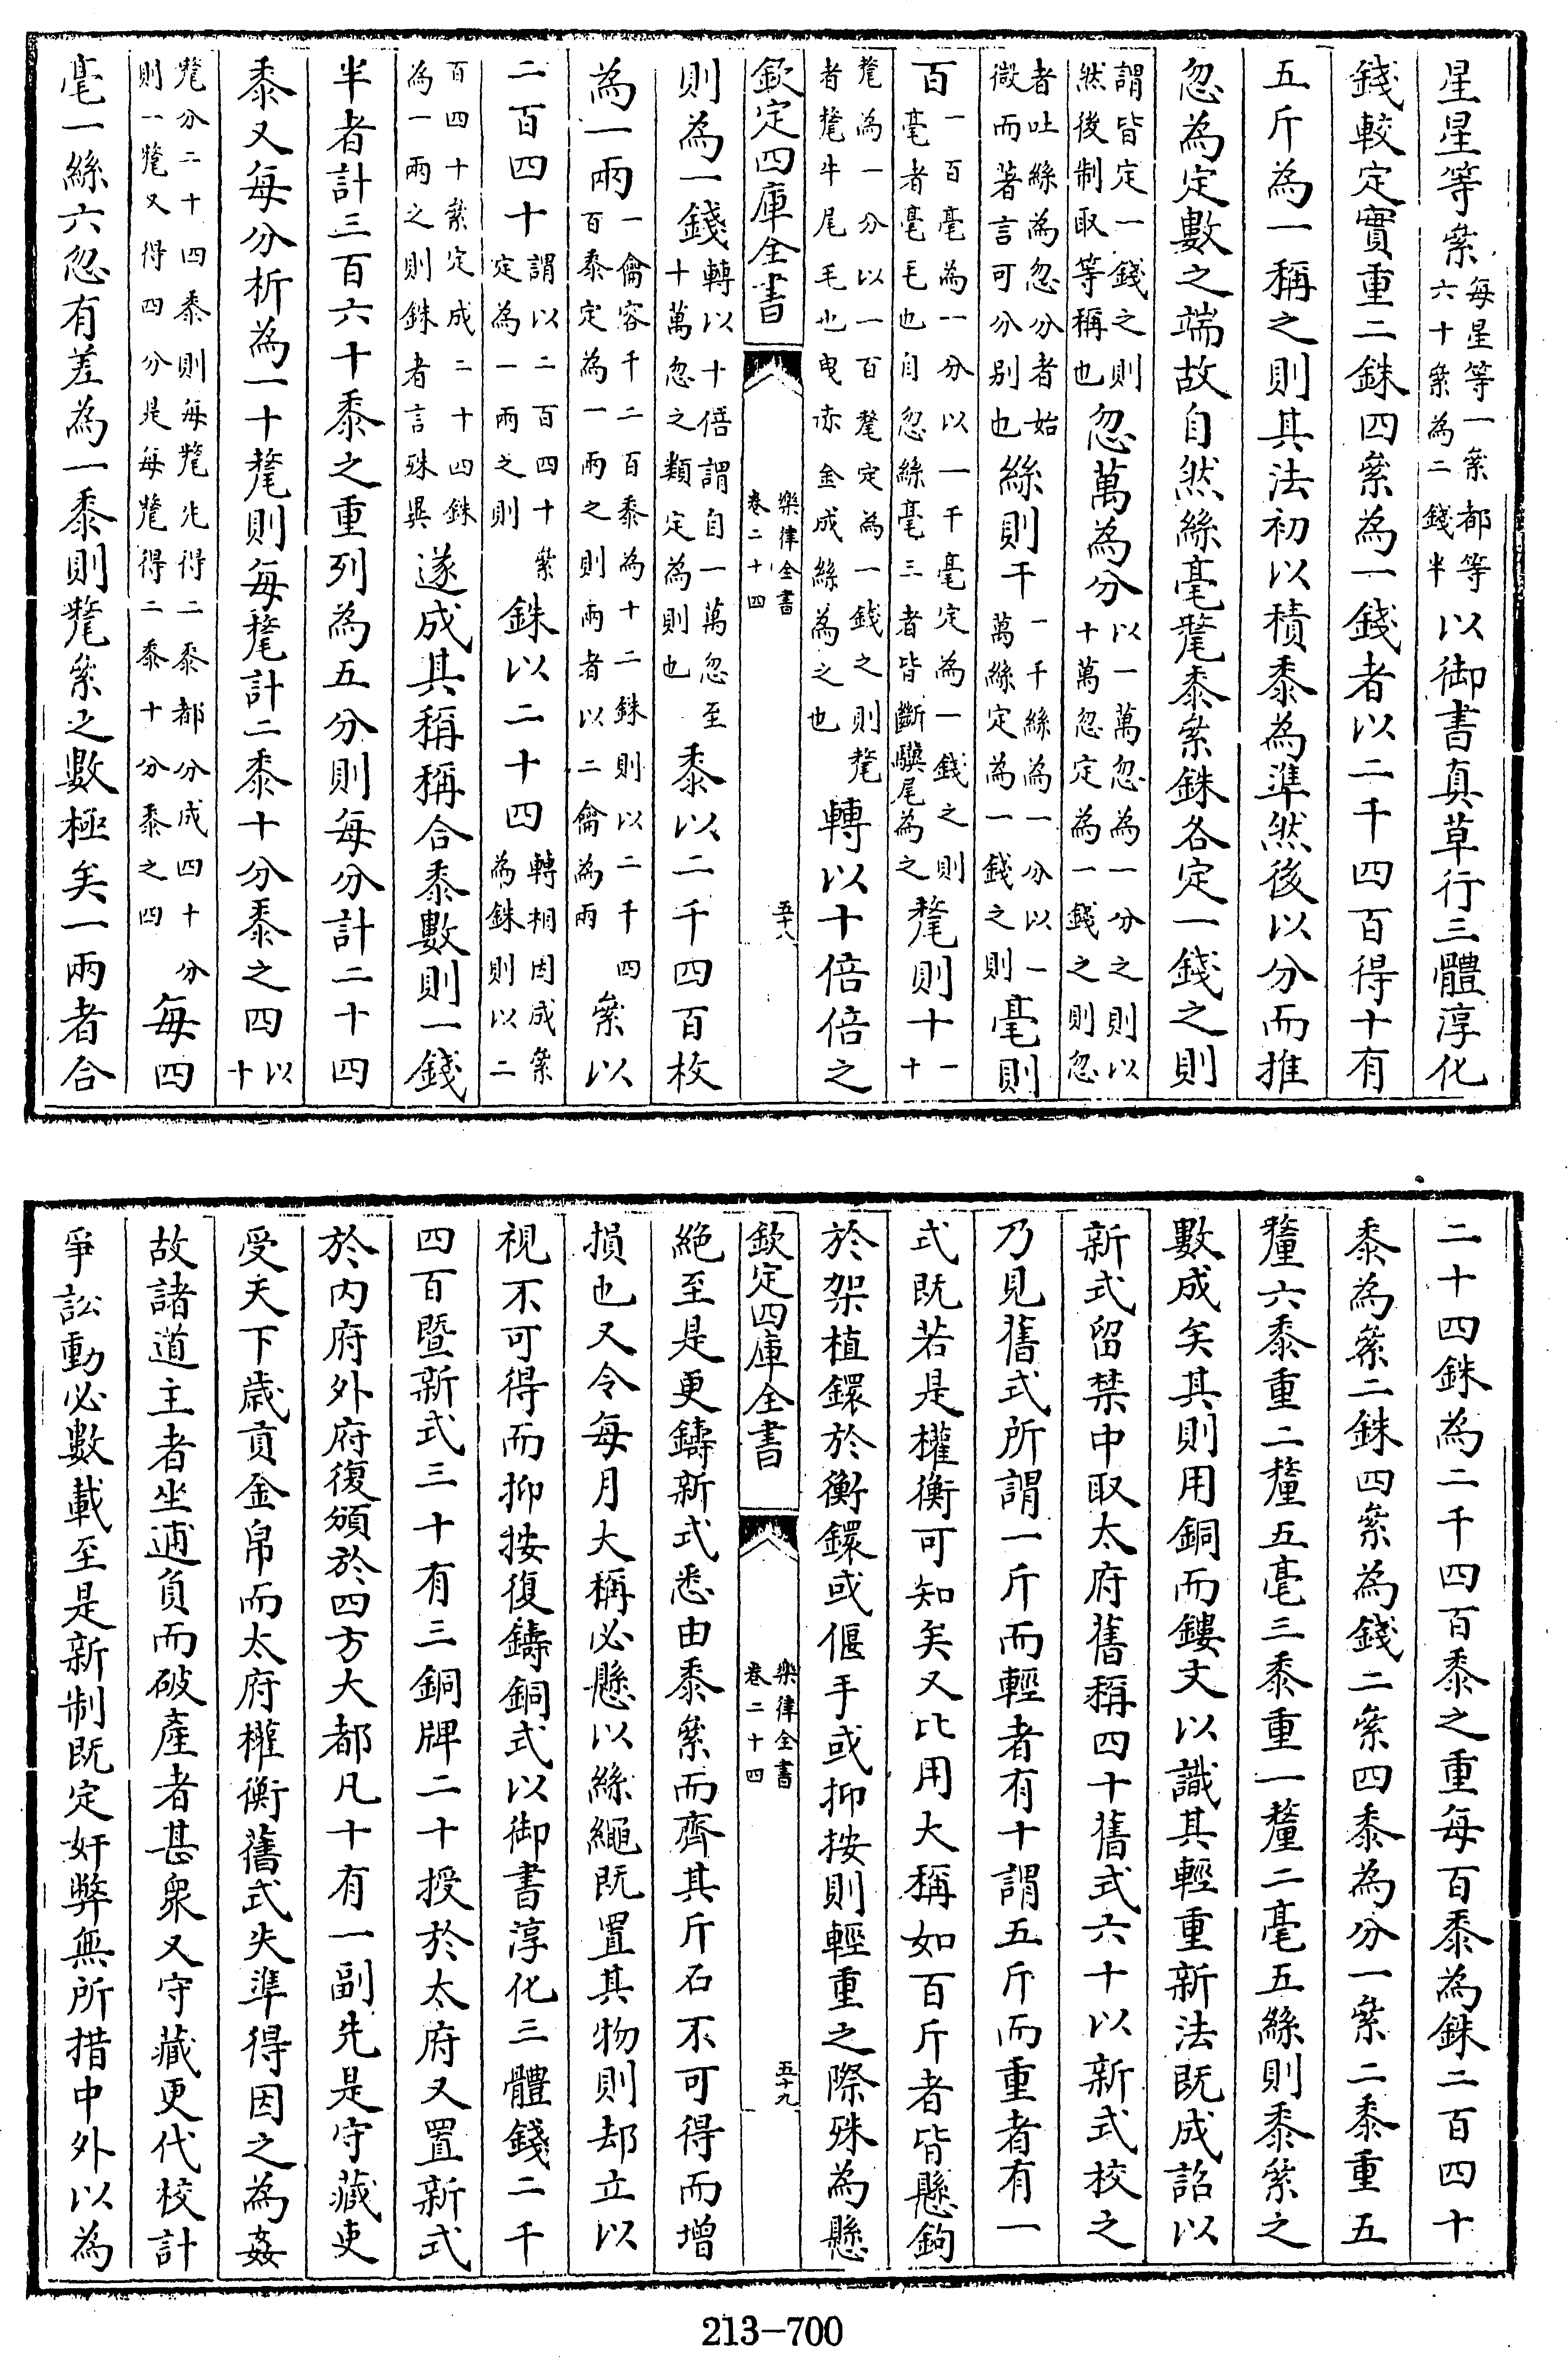 星星等絫每星等一絫都等六十絫為二錢半以御書真草行三體淳化
錢較定實重二銖四絫為一錢者以二千四百得十有
五斤為一稱之則其法初以積黍為準然後以分而推
忽為定數之端故自然絲毫氂黍絫銖各定一錢之則
謂皆定一錢之則然後制取等稱也忽萬為分以一萬忽為一分之則以十萬忽定為一錢之則忽
者吐絲為忽分者始微而著言可分別也絲則千一千絲為一分以一萬絲定為一錢之則毫則
百一百毫為一分以一千毫定為一錢之則毫者毫毛也自忽絲毫三者皆斷驥尾為之氂則十一十
氂為一分以一百氂定為一錢之則氂者氂牛尾毛也曳赤金成絲為之也轉以十倍倍之
欽定四庫全書 樂律全書 卷二十四 五十八
則為一錢轉以十倍謂自一萬忽至十萬忽之類定為則也黍以二千四百枚
為一兩一龠容千二百黍為十二銖則以二千四百黍定為一兩之則兩者以二龠為兩絫以
二百四十謂以二百四十絫定為一兩之則銖以二十四轉相因成絫為銖則以二
百四十絫定成二十四銖為一兩之則銖者言殊異遂成其稱稱合黍數則一錢
半者計三百六十黍之重列為五分則每分計二十四
黍又每分析為一十氂則每氂計二黍十分黍之四以十
氂分二十四黍則每氂先得二黍都分成四十分則一氂又得四分是每氂得二黍十分黍之四每四
毫一絲六忽有差為一黍則氂絫之數極矣一兩者合
二十四銖為二千四百黍之重每百黍為銖二百四十
黍為絫二銖四絫為錢二絫四黍為分一絫二黍重五
釐六黍重二釐五毫三黍重一釐二毫五絲則黍絫之
數成矣其則用銅而鏤文以識其輕重新法既成詔以
新式留禁中取太府舊稱四十舊式六十以新式校之
乃見舊式所謂一斤而輕者有十謂五斤而重者有一
式既若是權衡可知矣又比用大稱如百斤者皆懸鉤
於架植鐶於衡鐶或偃手或抑按則輕重之際殊為懸
欽定四庫全書 樂律全書 卷二十四 五十九
絕至是更鑄新式悉由黍絫而齊其斤石不可得而增
損也又令每月大稱必懸以絲繩既置其物則却立以
視不可得而抑按復鑄銅式以御書淳化三體錢二千
四百暨新式三十有三銅牌二十授於太府又置新式
於內府外府復頒於四方大都凡十有一副先是守藏吏
受天下歲貢金帛而太府權衡舊式失準得因之為姦
故諸道主者坐逋負而破產者甚眾又守藏更代校計
爭訟動必數載至是新制既定奸弊無所措中外以為
213-700